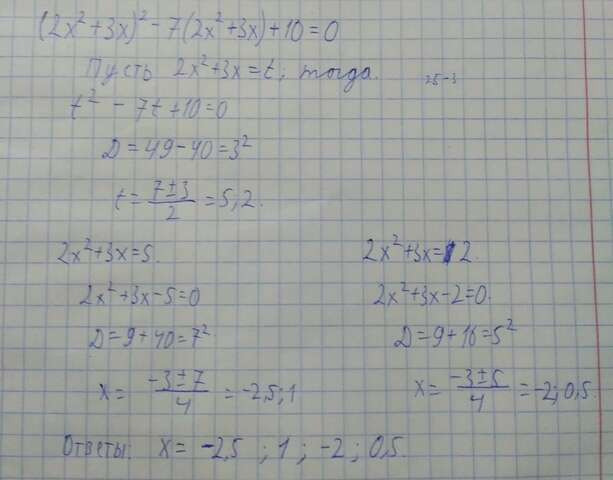 (2x²+3x)²-7(2x²+3x)+10=0
Пусть 2x²+3x=t; тогда.
t²-7t+10=0
D=49-40=3²
t=(7±3)/2=5;2.
2x²+3x=5.
2x²+3x-5=0
D=9+40=7²
x=(-3±7)/4=-2,5;1
2x²+3x=2.
2x²+3x-2=0.
D=9+16=5²
x=(-3±5)/4=-2;0,5.
Ответы: x=-2,5;1;-2;0,5.